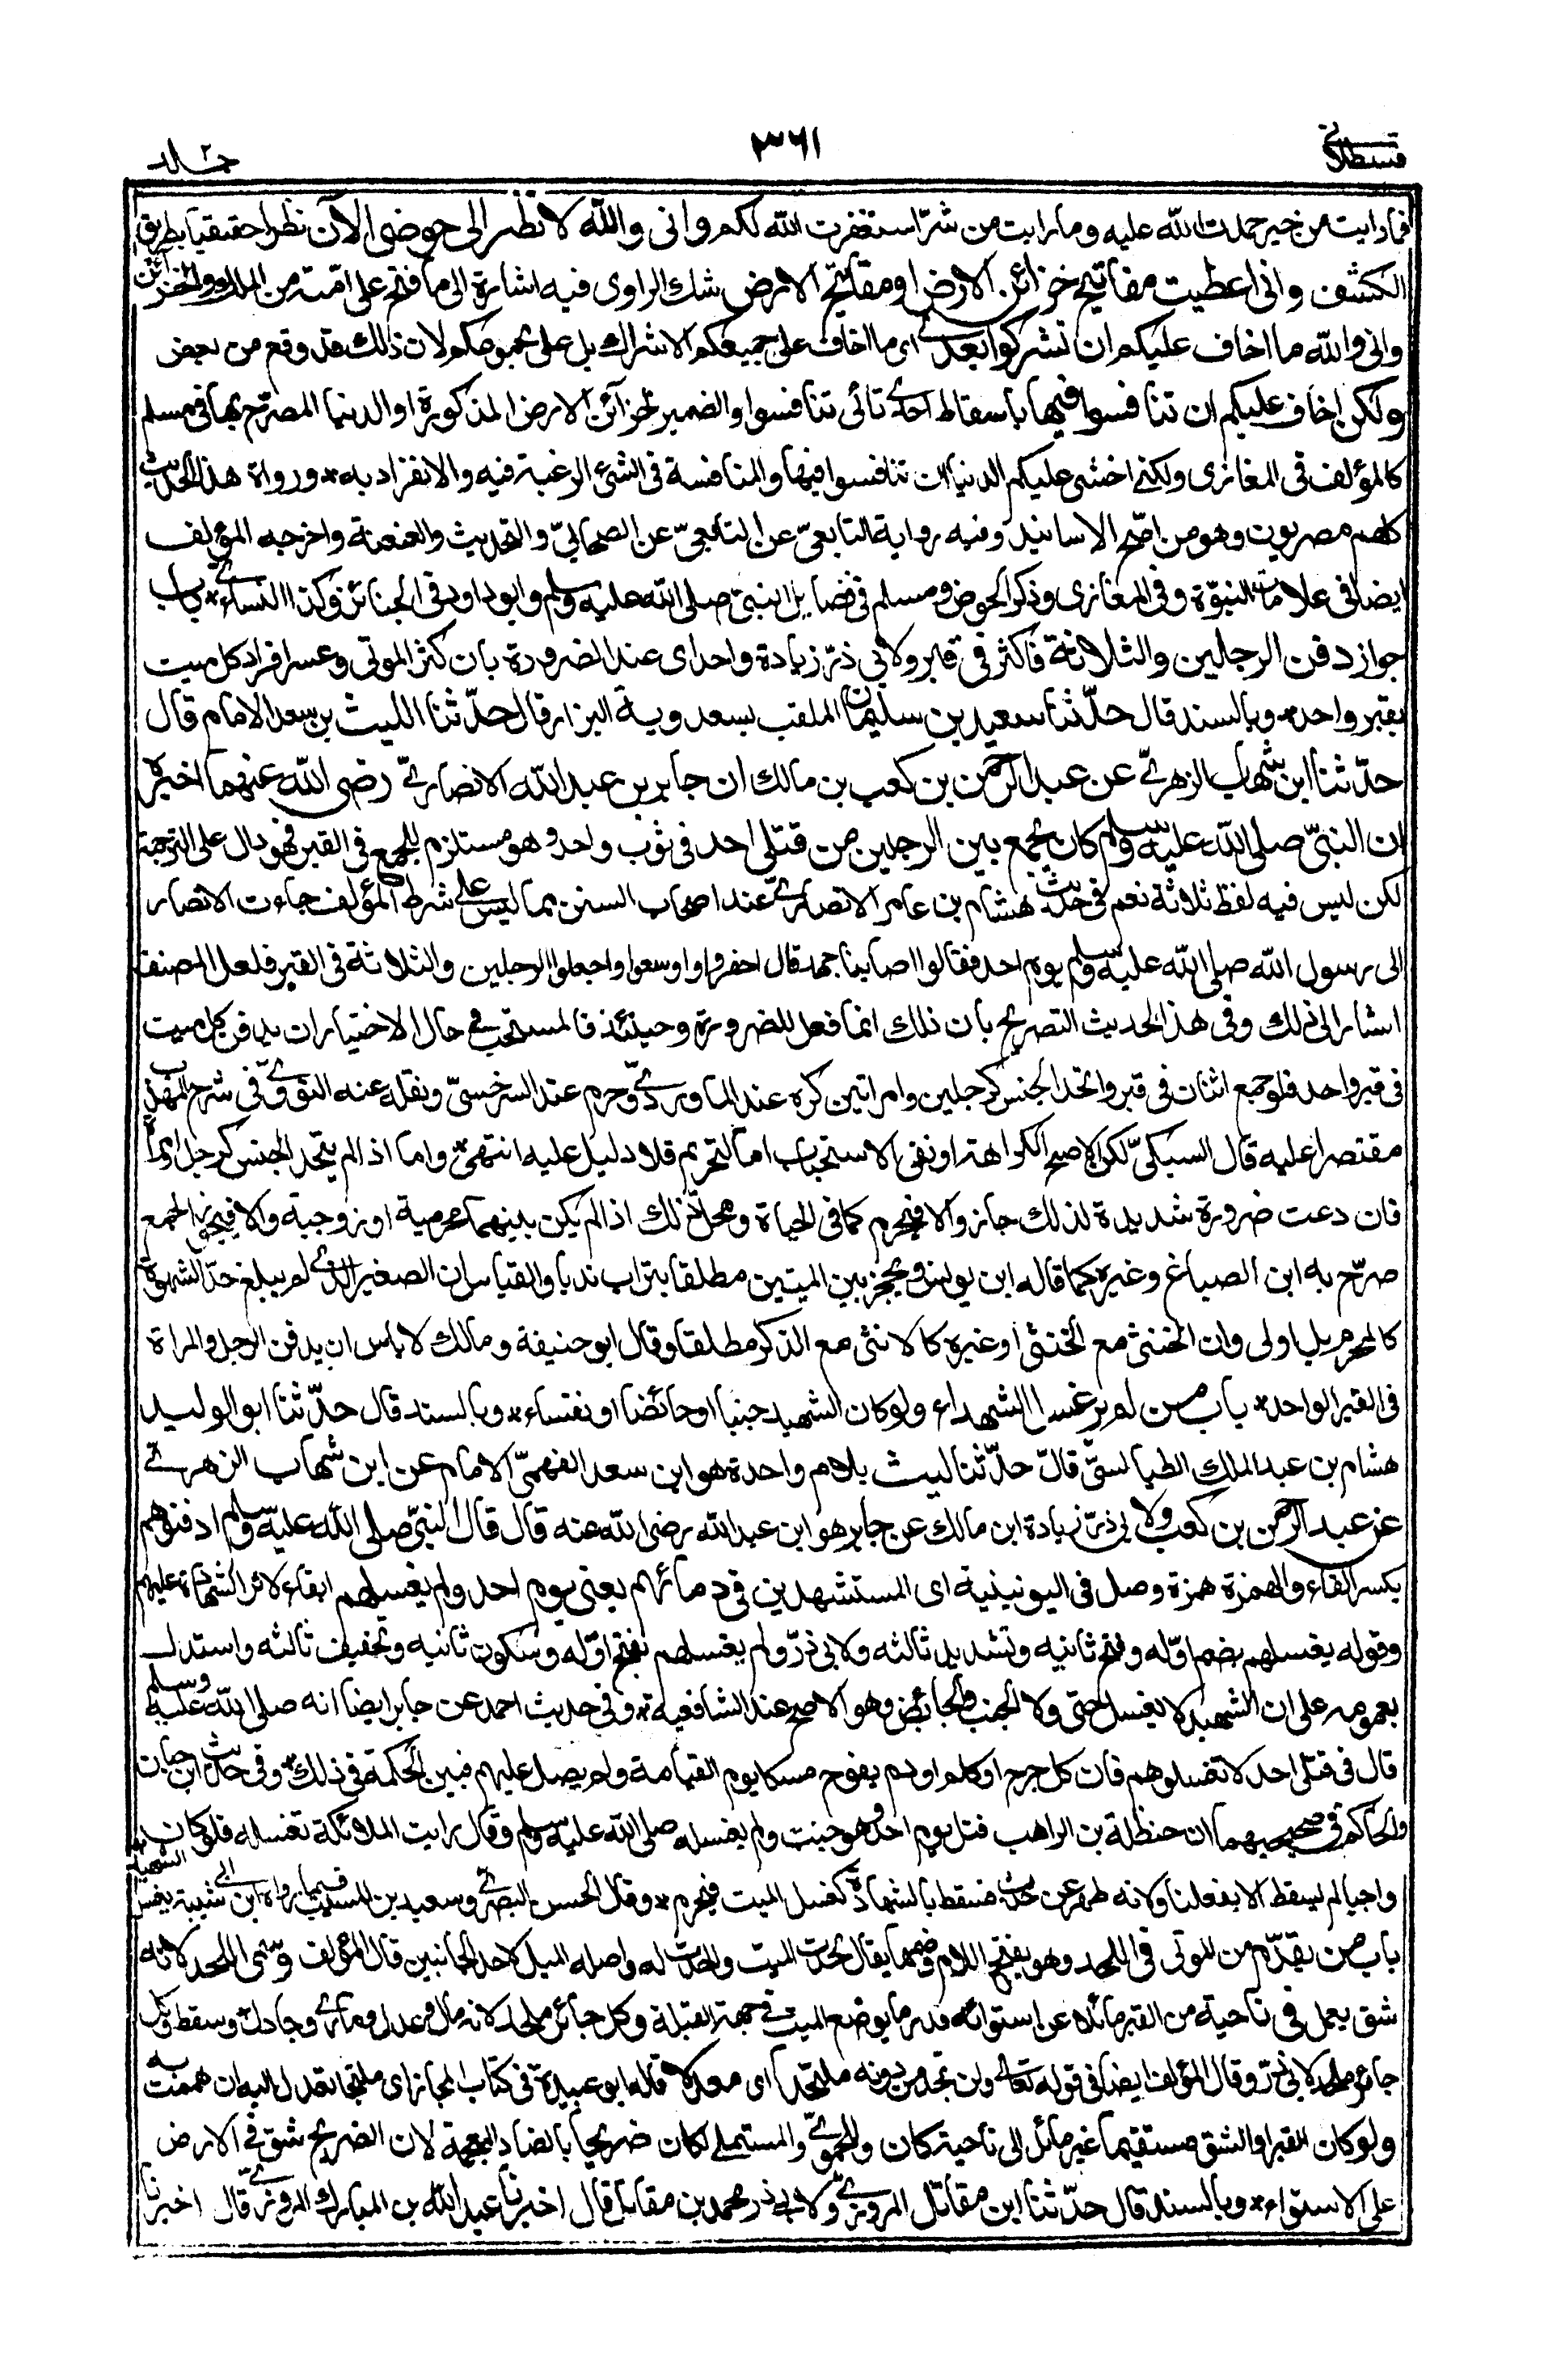 قسطلانی ٣٦١ جلد٢
فما رايت من خير حمدت الله عليه وما رايت من شرّ استغفرت الله لكم وانى والله لانظر الى حوضى الآن نظرا حقيقيا بطريق
الكشف وانى اعطيت مفاتيح خزائن الارض او مفاتيح الارض شك الراوى فيه اشارة الى ما فتح على امّته من الملك والخزائن
وانى والله ما اخاف عليكم ان تشركوا بعدى اى ما اخاف على جميعكم الاشراك بل على مجموعكم لان ذلك قد وقع من بعض
ولكن اخاف عليكم ان تنافسوا فيها باسقاط احدى تائى تنافسوا والضمير لخزآئن الارض المذكورة او الدنيا المصرّح بها فى مسلم
كالمؤلف فى المغازى ولكنى اخشى عليكم الدنيا ان تنافسوا فيها والمنافسة فى الشئ الرغبة فيه والانفراد به * ورواة هذا الحديث
كلهم مصريون وهو من اصّح الاسانيد وفيه رواية التابعىّ عن التابعىّ عن الصحابىّ والتحديث والعنعنة واخرجه المؤلف
ايضا فى علامات النبوّة وفى المغازى وذكر الحوض ومسلم فى فضايل النبىّ صلى الله عليه وسلم وابو داود فى الجنائز وكذا النساءى * باب
جواز دفن الرجلين والثلاثة فاكثر فى قبر ولابى ذرّ زيادة واحد اى عند الضرورة بان كثر الموتى وعسر افراد كل ميت
بقبر واحد * وبالسند قال حدّثنا سعيد بن سليمان الملقب بسعدوية البزار قال حدّثنا الليث بن سعد الامام قال
حدّثنا ابن شهاب الزهرىّ عن عبد الرحمن بن كعب بن مالك ان جابر بن عبد الله الانصارىّ رضى الله عنهما اخبره
ان النبىّ صلى الله عليه وسلم كان يجمع بين الرجلين من قتلى احد فى ثوب واحد وهو مستلزم للجمع فى القبر فهو دال على الترجمة
لكن ليس فيه لفظ ثلاثة نعم فى حديث هشام بن عامر الانصارىّ عند اصحاب السنن مما ليس على شرط المؤلف جاءت الانصار
الى رسول الله صلى الله عليه وسلم يوم احد فقالوا اصابنا جهد قال احفروا واوسعوا واجعلوا الرجلين والثلاثة فى القبر فلعل المصنف
اشار الى ذلك وفى هذا الحديث التصريح بان ذلك انما فعل للضرورة وحينئذ فالمستحب فى حال الاختيار ان يدفن كل ميت
فى قبر واحد فلو جمع اثنان فى قبر واتحد الجنس كرجلين وامراتين كره عند الماوردىّ وحرم عند السرخسىّ ونقله عنه النووىّ فى شرح المهذب
مقتصرا عليه قال السبكىّ لكن الاصح الكراهة او نفى الاستحباب اما التحريم فلا دليل عليه انتهى * واما اذا لم يتحد الجنس كرجل وامرأة
فان دعت ضرورة شديدة لذلك جاز والا فيحرم كما فى الحياة ومحل ذلك اذا لم يكن بينهما محرمية او زوجية والا فيجوز الجمع
صرّح به ابن الصباغ وغيره كما قاله ابن يونس ويحجز بين الميتين مطلقا بتراب ندبا والقياس ان الصغير الذى لم يبلغ حدّ الشهوة
كالمحرم بل اولى وان الخنثى مع الخنثى او غيره كالانثى مع الذكر مطلقا وقال ابو حنيفة ومالك لا باس ان يدفن الرجل والمراة
فى القبر الواحد * باب من لم ير غسل الشهداء ولو كان الشهيد جنبا او حائضا او نفساء * وبالسند قال حدّثنا ابو الوليد
هشام بن عبد الملك الطيالسىّ قال حدّثنا ليث بلام واحدة هو ابن سعد الفهمىّ الامام عن ابن شهاب الزهرىّ
عن عبد الرحمن بن كعب ولابى ذرّ زيادة ابن مالك عن جابر هو ابن عبد الله رضى الله عنه قال قال النبىّ صلى الله عليه وسلم ادفنوهم
بكسر الفاء والهمزة همزة وصل فى اليونينية اى المستشهدين فى دمائهم يعنى يوم احد ولم يغسلهم ابقاء لاثر الشهادة عليهم
وقوله يغسلهم بضم اوّله وفتح ثانيه وتشديد ثالثه ولابى ذرّ ولم يغسلهم بفتح اوّله وسكون ثانيه وتخفيف ثالثه واستدل
بعمومه على ان الشهيد لا يغسل حتى ولا الجنب والحائض وهو الاصح عند الشافعية * وفى حديث احمد عن جابر ايضا انه صلى الله عليه وسلم
قال فى قتلى احد لا تغسلوهم فان كل جرح او كلم او دم يفوح مسكا يوم القيامة ولم يصل عليهم فبين الحكمة فى ذلك * وفى حديث ابن حبان
والحاكم فى صحيحيهما ان حنظلة بن الراهب قتل يوم احد وهو جنب ولم يغسله صلى الله عليه وسلم وقال رايت الملائكة تغسله فلو كان
واجبا لم يسقط الا بفعلنا ولانه طهر عن حدث فسقط بالشهادة كغسل الميت فيحرم * وقال الحسن البصرىّ وسعيد بن المسيب فيما رواه ابن ابى شيبة يغسل الشهيد
باب من يقدّم من الموتى فى اللحد وهو بفتح اللام وضمها يقال لحدت الميت والحدت له واصله الميل لاحد الجانبين قال المؤلف وسّمى اللحد لانه
شق يعمل فى ناحية من القبر مائلة عن استوائه قدر ما يوضع الميت فى جهة القبلة وكل جائر ملحد لانه مال وعدل ومارى وجادل وسقط وكل
جائر ملحد لابى ذرّ وقال المؤلف ايضا فى قوله تعالى ولن تجد من دونه ملتحدا اى معدلا قاله ابو عبيدة فى كتاب المجاز اى ملتجأ تعدل اليه ان هممت به
ولو كان القبر او الشق مستقيما غير مائل الى ناحية كان وللحموىّ والمستملى لكان ضريحا بالضاد المعجمة لان الضريح شق فى الارض
على الاستواء * وبالسند قال حدّثنا ابن مقاتل المروزىّ ولابى ذر محمد بن مقاتل قال اخبرنا عبد الله بن المبارك المروزىّ قال اخبرنا